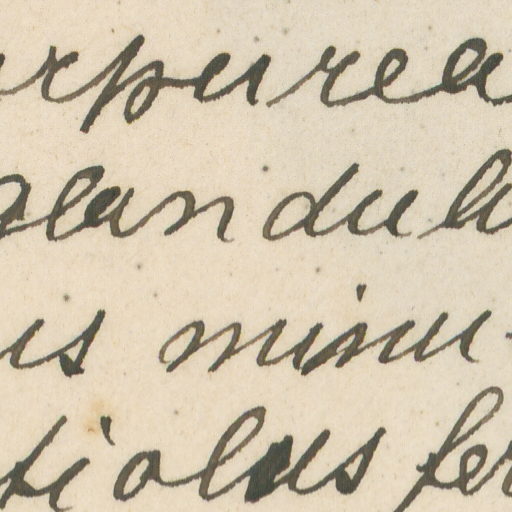 urpurea
glandul
is minu-
tiolus fer